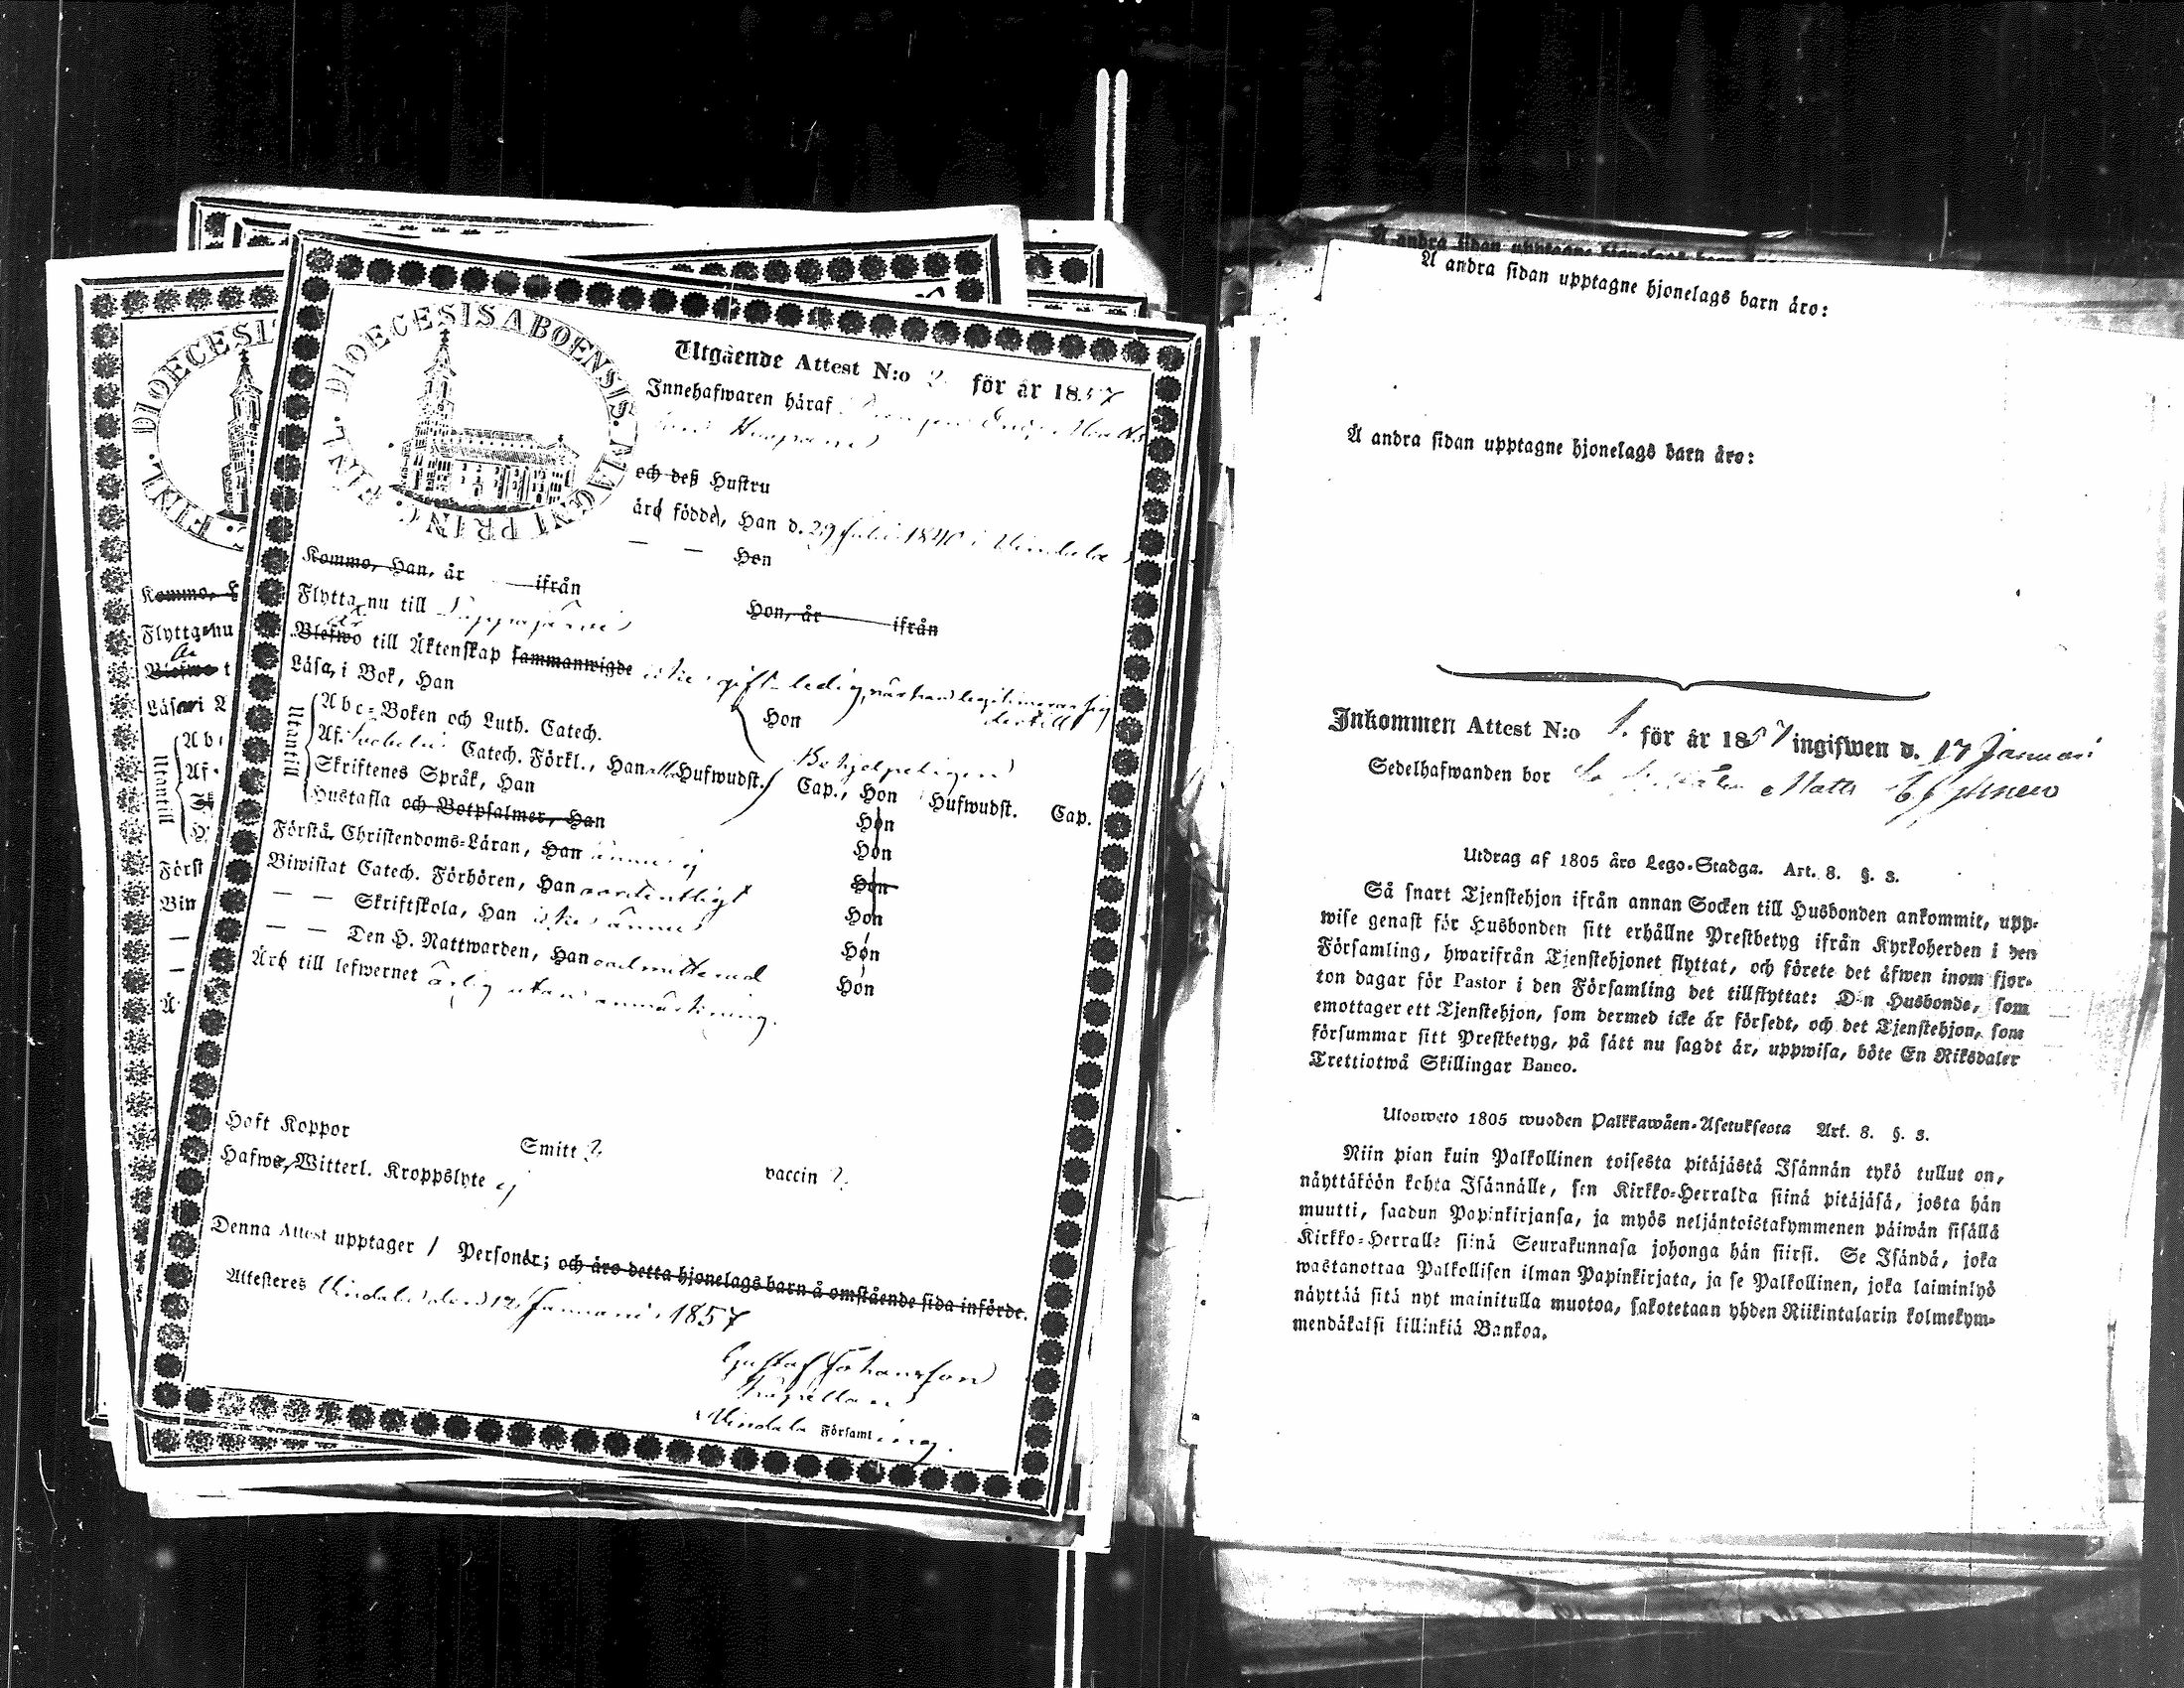 DIOECESIS
FINL.
Kommo,
Flytta nu
Läsa i
Abc
Af
Utantill
Först
DIOECESIS ABOENSIS. MAGNI PRINC. FINL.
Utgående Attest N:o 2. för år 1857
Innehafwaren häraf
och deß Hustru
äro födde, Han d. 29 Juli 1840 i Vindala
— — Hon
Kommo, Han, år ifrån
Hon, år ifrån
Flytta nu till Lappajärvi
Blefwo till Äktenskap sammanwigde gift ledig, när han legitimerar sig
dertill
Läsa, i Bok, Han
Hon
Utantill
Abc-Boken och Luth. Catech.
Af Catech. Förkl., Han Hufwudst. Cap., Hon Hufwudst. Cap.
Skriftenes Språk, Han Hon
Hustafla och Botpsalmer, Han Hon
Förstå Christendoms-Läran, Han ännu ej Hon
Biwistat Catech. Förhören, Han ordentligt Hon
— — Skriftskola, Han icke ännu Hon
— — Den H. Nattwarden, Han oadmitterad Hon
Äro till lefwernet ärlig utan anmärkning.
Haft Koppor Smitt ? vaccin ?
Hafwa Witterl. Kroppslyte ej
Denna Attest upptager 1 Personer; och äro detta hjonelags barn å omstående sida införde.
Attesteres Vindala den 12 Januari 1857
Gustaf Johansson
Kapellan
Vindala Församling.
Å andra sidan upptagne hjonelags barn äro:
Å andra sidan upptagne hjonelags barn äro:
Å andra sidan upptagne hjonelags barn äro:
Inkommen Attest N:o 1. för år 1857 ingifwen d. 17 Januari
Sedelhafwanden bor Matts
Utdrag af 1805 års Lego-Stadga. Art. 8. §. 3.
Så snart Tjenstehjon ifrån annan Socken till Husbonden ankommit, upp-
wise genast för Husbonden sitt erhållne Prestbetyg ifrån Kyrkoherden i den
Församling, hwarifrån Tjenstehjonet flyttat, och förete det äfwen inom fjor-
ton dagar för Pastor i den Församling det tillflyttat: Den Husbonde, som
emottager ett Tjenstehjon, som dermed icke är försedt, och det Tjenstehjon, som
försummar sitt Prestbetyg, på sätt nu sagdt är, uppwisa, böte En Riksdaler
Trettiotwå Skillingar Banco.
Ulosweto 1805 wuoden Palkkawäen-Asetuksesta Art. 8. §. 3.
Niin pian kuin Palkollinen toisesta pitäjästä Isännän tykö tullut on,
näyttäköön kohta Isännälle, sen Kirkko-Herralda siinä pitäjäsä, josta hän
muutti, saadun Papinkirjansa, ja myös neljäntoistakymmenen päiwän sisällä
Kirkko-Herralle siinä Seurakunnasa johonga hän siirsi. Se Isändä, joka
wastanottaa Palkollisen ilman Papinkirjata, ja se Palkollinen, joka laiminlyö
näyttää sitä nyt mainitulla muotoa, sakotetaan yhden Riikintalarin kolmekym-
mendäkaksi killinkiä Bankoa.